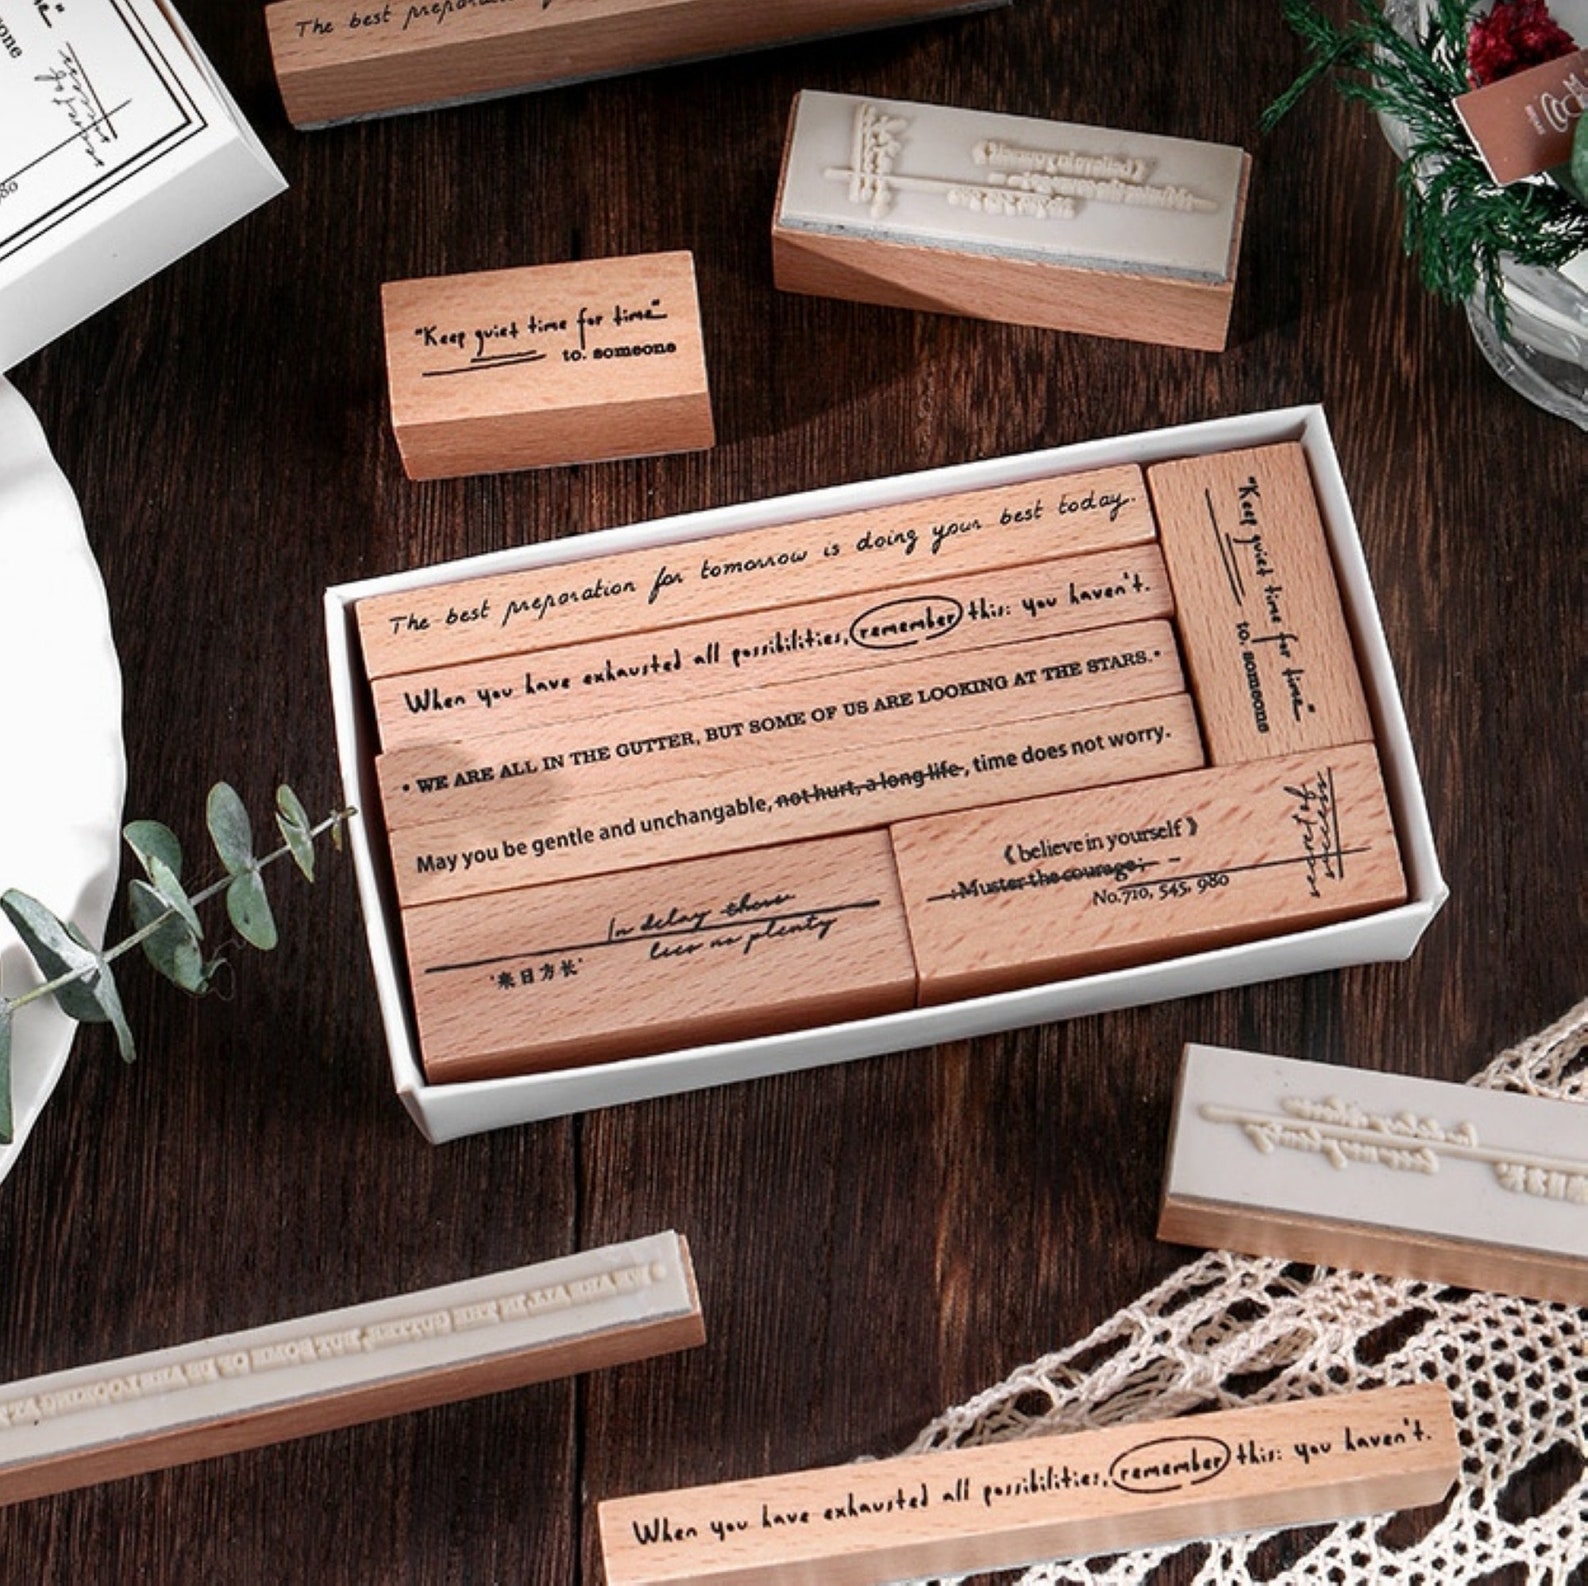 one
The best preparation
"Keep quiet time for time"
to. someone
The best preparation for tomorrow is doing your best today.
When you have exhausted all possibilities, remember this: you haven't.
• WE ARE ALL IN THE GUTTER, BUT SOME OF US ARE LOOKING AT THE STARS. •
May you be gentle and unchangable, not hurt, a long life , time does not worry.
"Keep quiet time for time"
to. someone
In delay there
lies no plenty
'来日方长'
《believe in yourself》
:Muster the courage;
No.710, 545, 980
secret of
success
WE ARE ALL IN THE GUTTER, BUT SOME OF US ARE LOOKING AT
When you have exhausted all possibilities, remember this: you haven't.